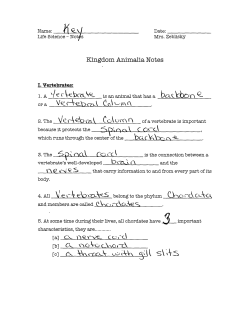 Name: Key Date:
Life Science - Notes Mrs. Zetinsky
Kingdom Animalia Notes
I. Vertebrates:
1. A Vertebrate is an animal that has a backbone
or a Vertebral Column.
2. The Vertebral Column of a vertebrate is important
because it protects the spinal cord,
which runs through the center of the backbone.
3. The Spinal cord is the connection between a
vertebrate's well-developed brain and the
nerves that carry information to and from every part of its
body.
4. All Vertebrates belong to the phylum Chordata
and members are called Chordates.
5. At some time during their lives, all chordates have 3 important
characteristics, they are...
[a] a nerve cord
[b] a notochord
[c] a throat with gill slits